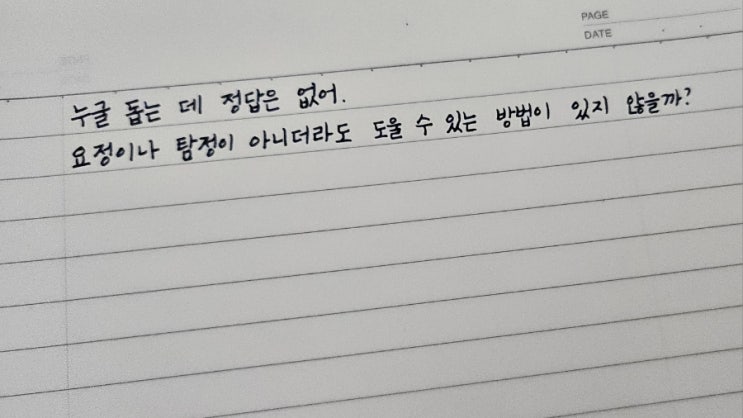 PAGE
DATE
누굴 돕는 데 정답은 없어.
요정이나 탐정이 아니더라도 도울 수 있는 방법이 있지 않을까?